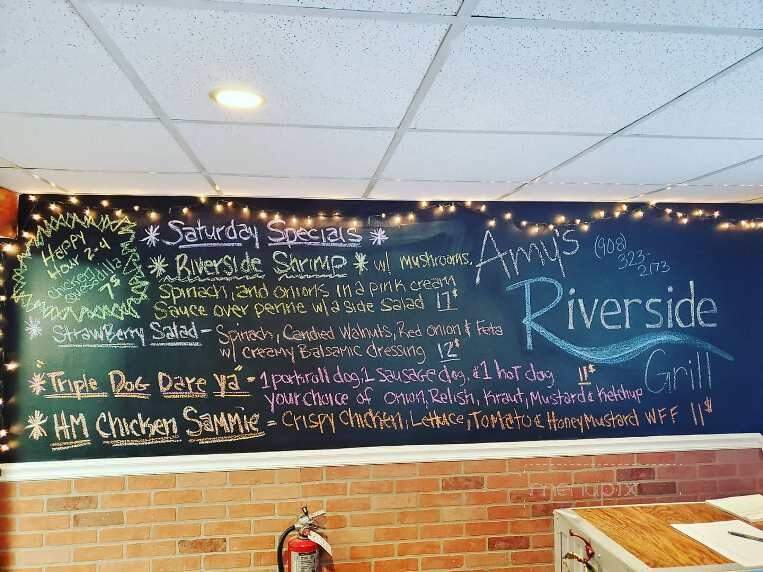 Happy
Hour 2-4
chicken
quesadilla
7$
* Saturday Specials *
* Riverside Shrimp * w/ mushrooms,
Spinach, and onions in a pink cream
Sauce over penne w/ a side Salad 17$
* Strawberry Salad - Spinach, Candied Walnuts, Red Onion & Feta
w/ creamy Balsamic dressing 12$
* "Triple Dog Dare ya" - 1 porkroll dog, 1 sausage dog, & 1 hot dog 11$
your choice of onion, Relish, Kraut, Mustard & Ketchup
* HM Chicken Sammie = Crispy Chicken, Lettuce, Tomato & Honey Mustard WFF 11$
Amy's
(908)
323-
2173
Riverside
Grill
menupix